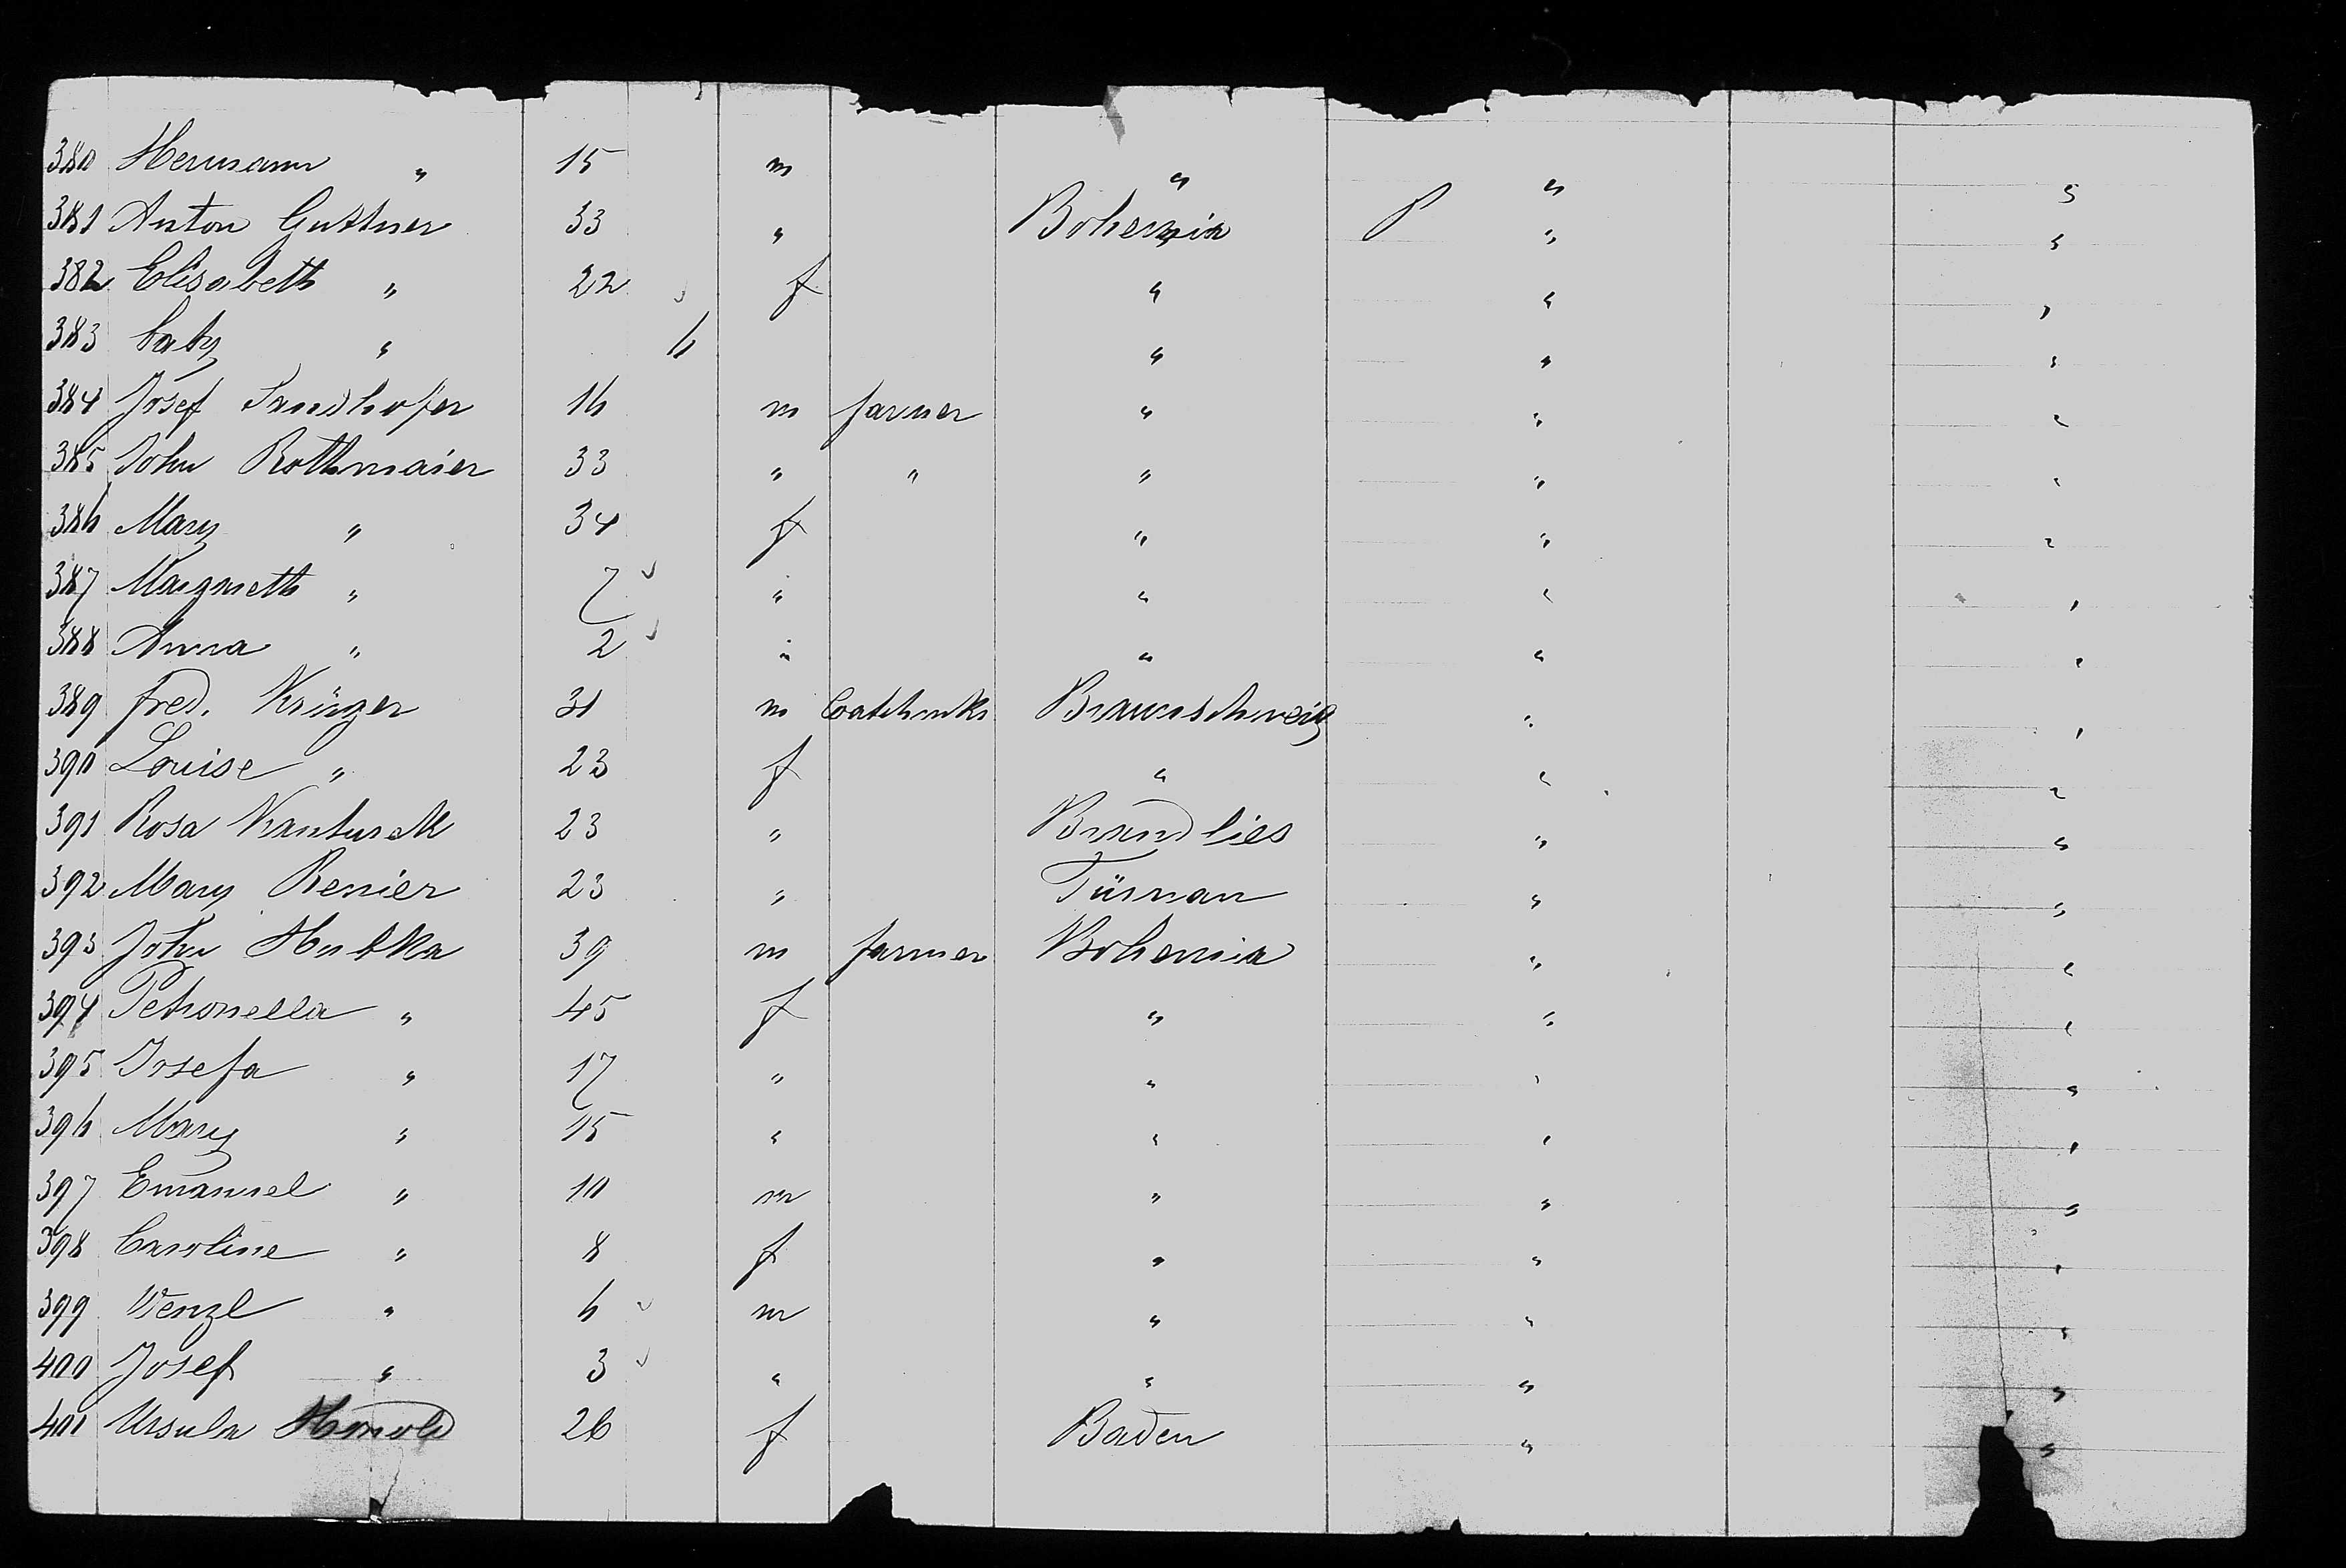 380 Hermann " 15 m " " "
381 Anton Guttner 33 " Bohemia " "
382 Elisabeth " 22 f " " "
383 baby " 6 " " "
384 Josef Sandhofer 16 m farmer " " "
385 John Rothmaier 33 " " " " "
386 Mary " 34 f " " "
387 Margareth " 7 " " " "
388 Anna " 2 " " " "
389 Fred. Krüger 31 m Braunschweig " "
390 Louise " 23 f " " "
391 Rosa 23 " Brandlies " "
392 Mary Renier 23 " Türnau " "
393 John Hubka 39 m farmer Bohemia " "
394 Petronella " 45 f " " "
395 Josefa " 17 " " " "
396 Mary " 15 " " " "
397 Emanuel " 10 m " " "
398 Caroline " 8 f " " "
399 Wenzl " 6 m " " "
400 Josef " 3 " " " "
401 Ursula Honold 26 f Baden " "